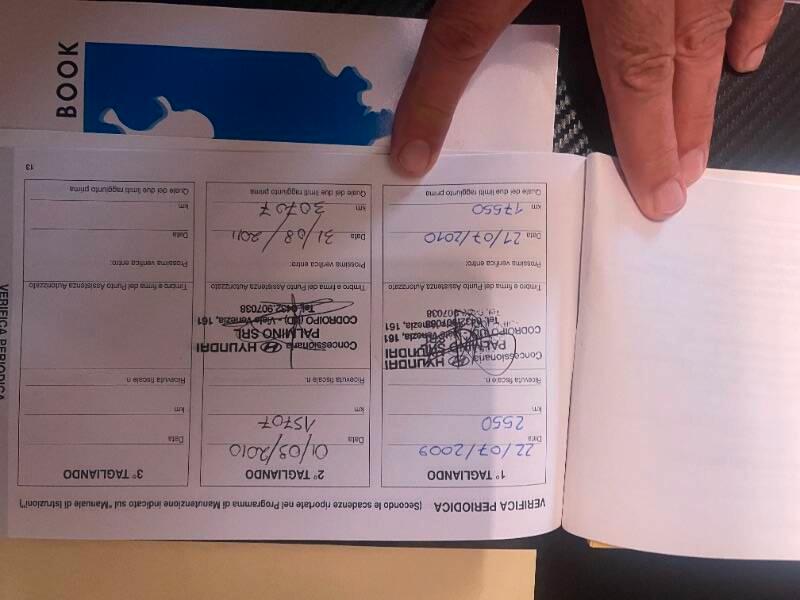 BOOK
VERIFICA PERIODICA
VERIFICA PERIODICA (Secondo le scadenze riportate nel Programma di Manutenzione indicato sul "Manuale di Istruzioni")
1° TAGLIANDO
Data 22/07/2009
km 2550
Ricevuta fiscale n.
Concessionaria HYUNDAI
PALMINO SRL
CODROIPO (UD) - Viale Venezia, 161
Tel. 0432.907038
Timbro e firma del Punto Assistenza Autorizzato
Prossima verifica entro:
Data 21/07/2010
km 17550
Quale dei due limiti raggiunto prima
2° TAGLIANDO
Data 01/09/2010
km 15707
Ricevuta fiscale n.
Concessionaria HYUNDAI
PALMINO SRL
CODROIPO (UD) - Viale Venezia, 161
Tel. 0432.907038
Timbro e firma del Punto Assistenza Autorizzato
Prossima verifica entro:
Data 31/08/2011
km 30707
Quale dei due limiti raggiunto prima
3° TAGLIANDO
Data
km
Ricevuta fiscale n.
Timbro e firma del Punto Assistenza Autorizzato
Prossima verifica entro:
Data
km
Quale dei due limiti raggiunto prima
13